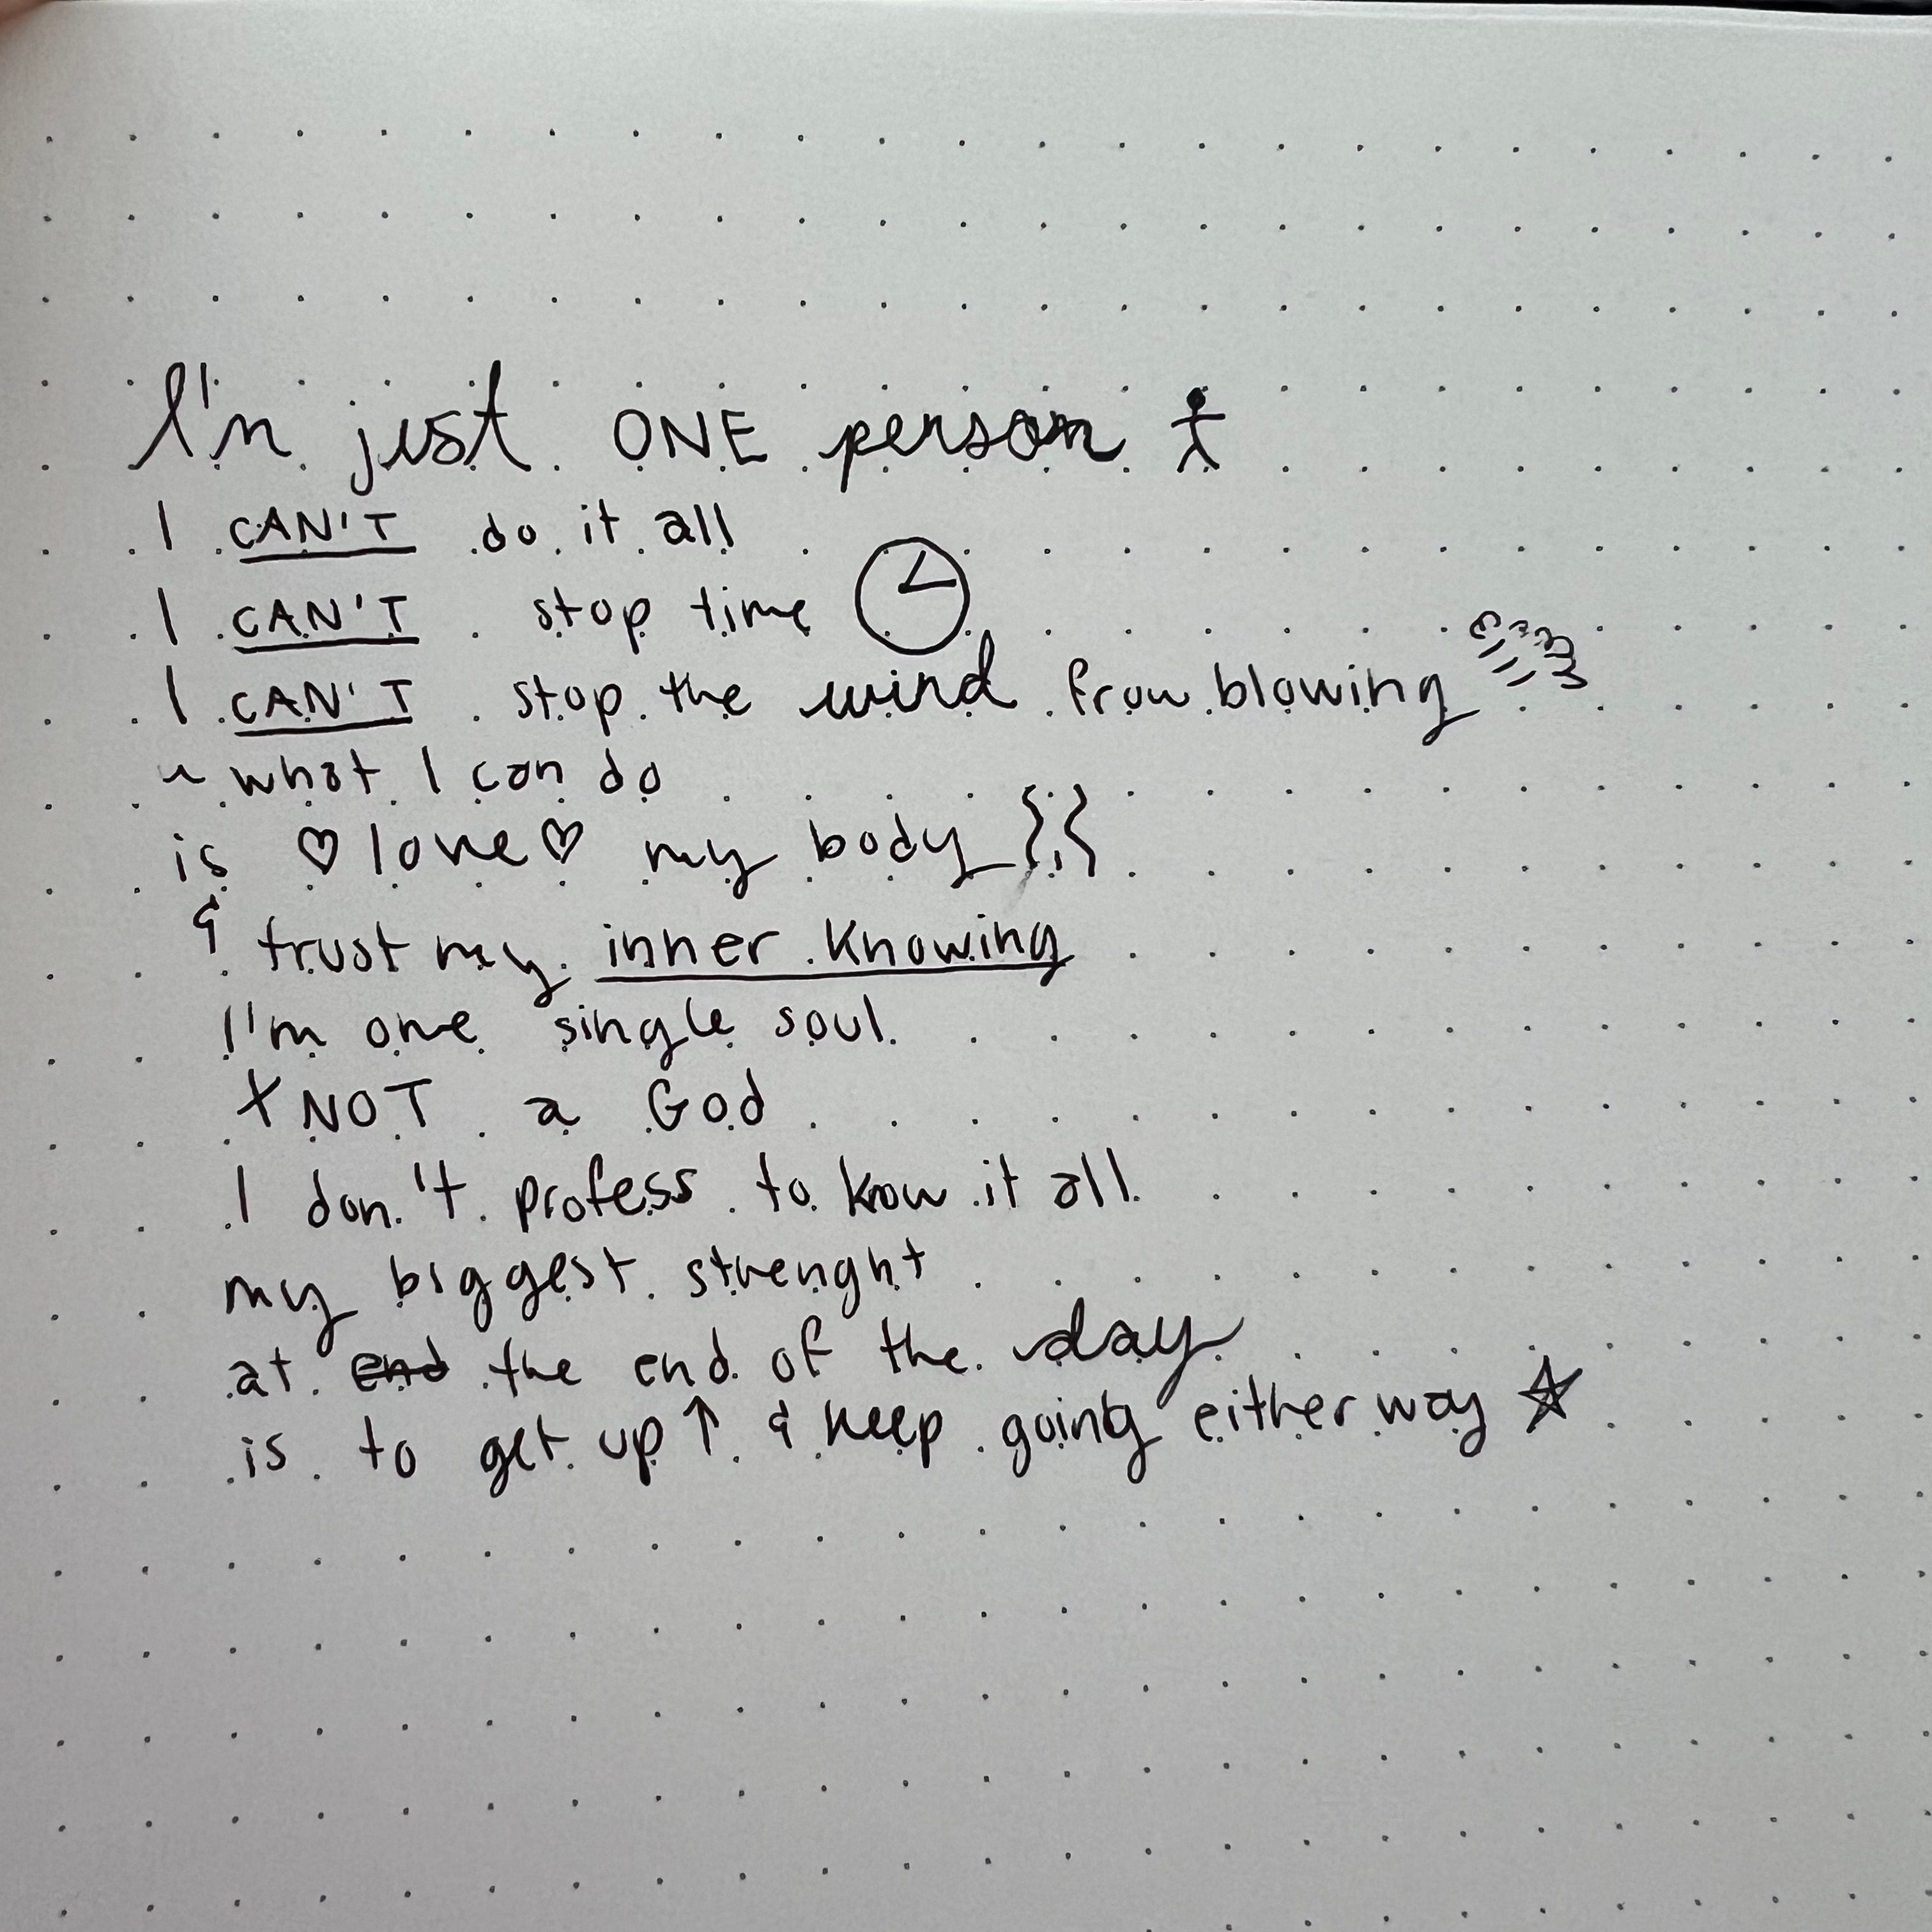 I'm just ONE person
I CAN'T do it all
I CAN'T stop time
I CAN'T stop the wind from blowing
~ what I can do
is ♡ love ♡ my body
& trust my inner knowing
I'm one single soul
+ NOT a God
I don't profess to know it all
my biggest strenght
at end the end of the day
is to get up ↑ & keep going either way ☆